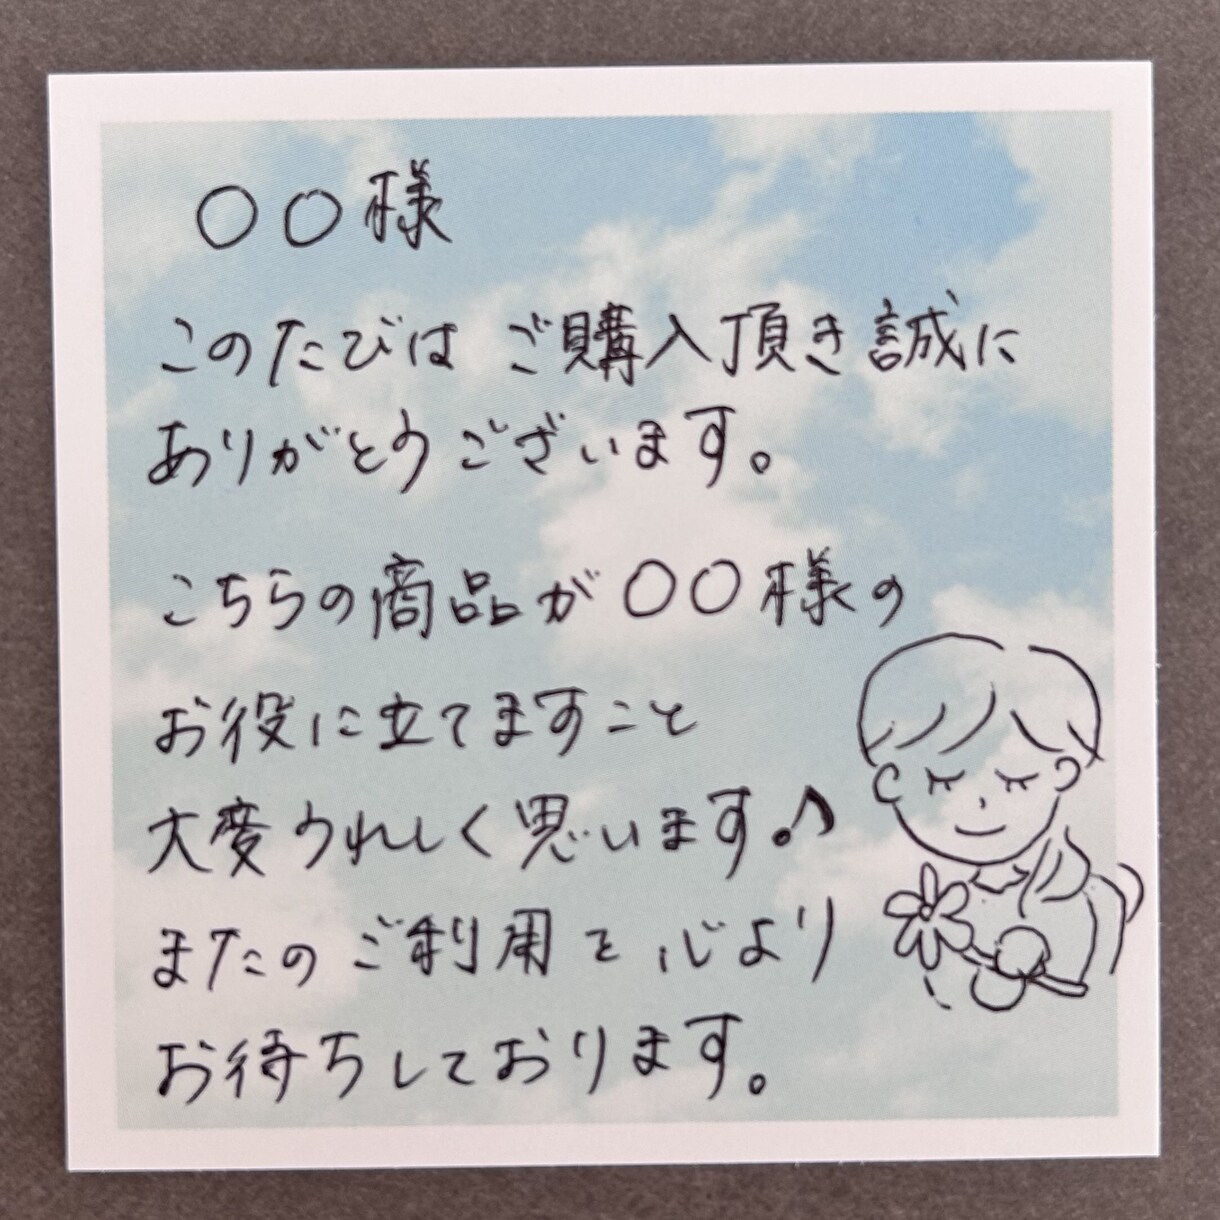 〇〇様
このたびは ご購入頂き誠に
ありがとうございます。
こちらの商品が〇〇様の
お役に立てますこと
大変うれしく思います♪
またのご利用を心より
お待ちしております。